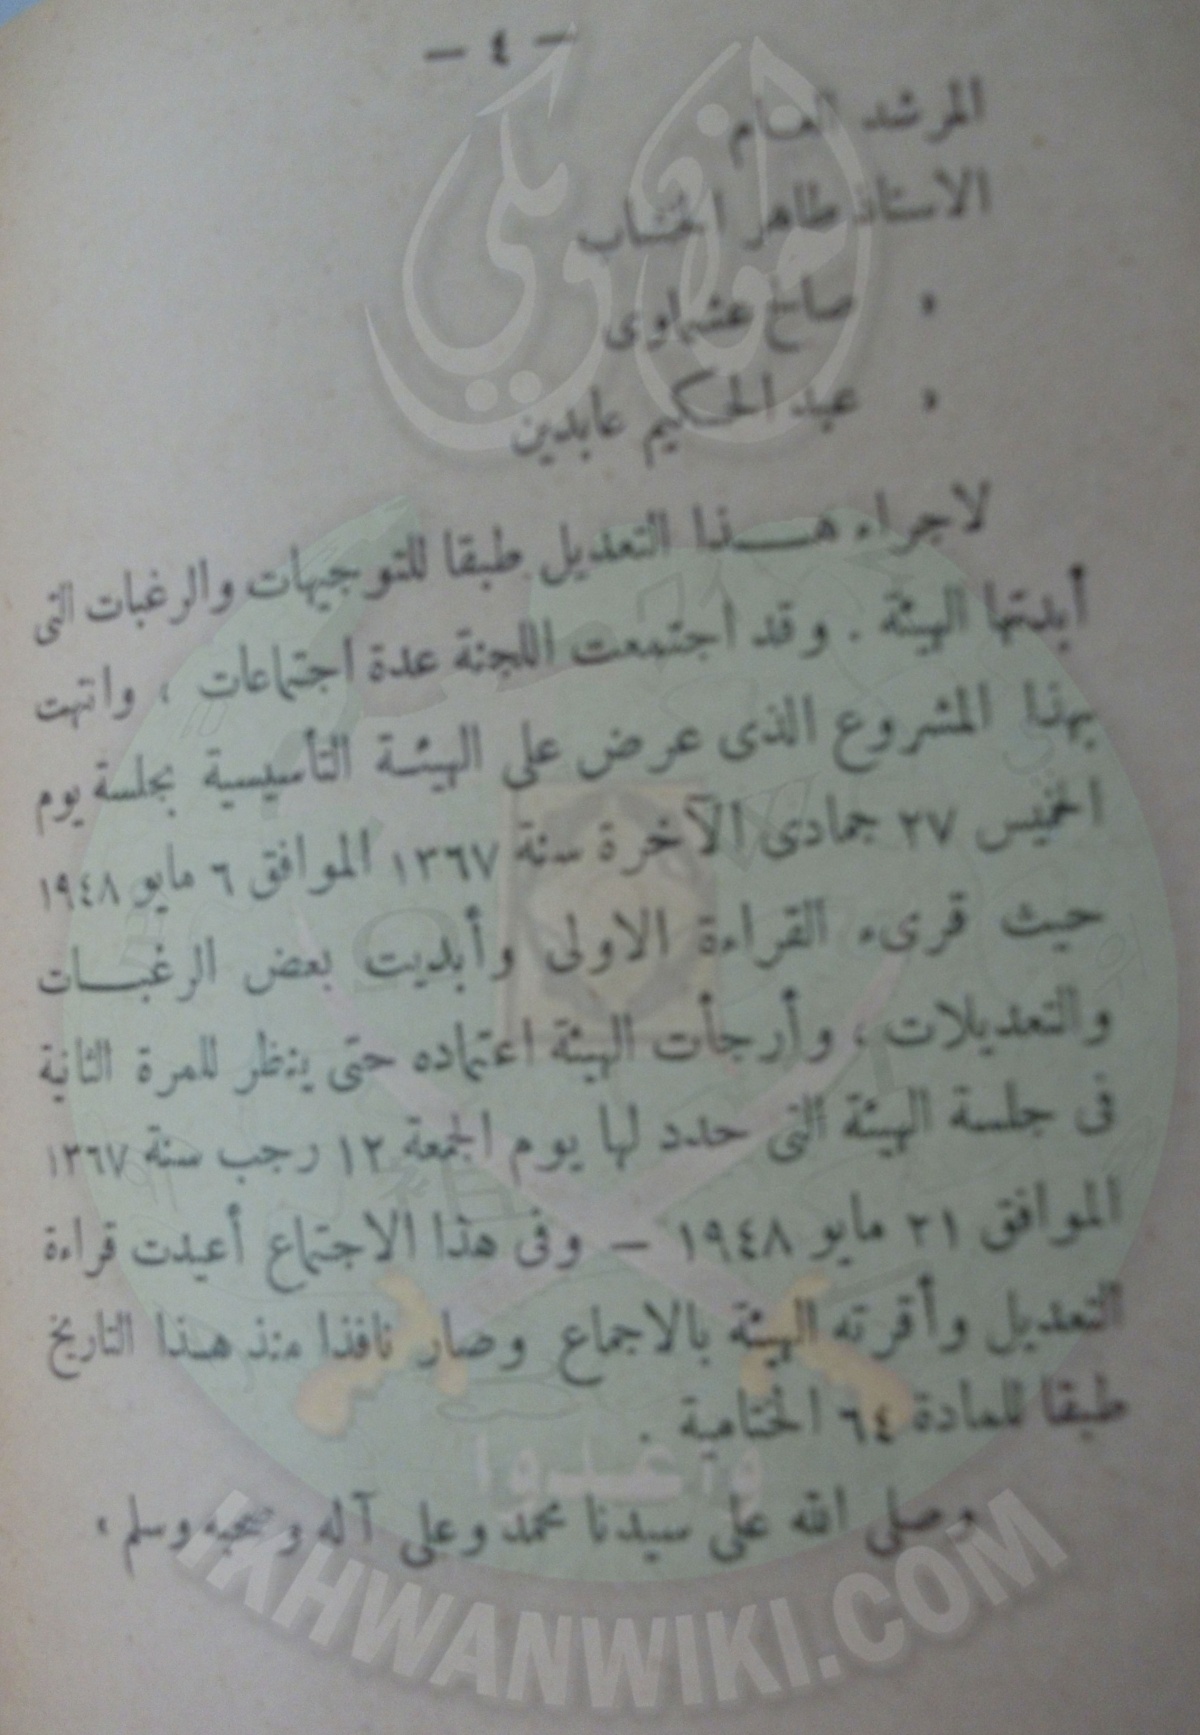 — ٤ —
المرشد العام
الاستاذ طاهر الخشاب
» صالح عشماوى
» عبد الحكيم عابدين
لاجراء هذا التعديل طبقا للتوجيهات والرغبات التى
أبدتها الهيئة . وقد اجتمعت اللجنة عدة اجتماعات ، وانتهت
بهذا المشروع الذى عرض على الهيئة التأسيسية بجلسة يوم
الخميس ٢٧ جمادى الآخرة سنة ١٣٦٧ الموافق ٦ مايو ١٩٤٨
حيث قرىء القراءة الاولى وأبديت بعض الرغبات
والتعديلات ، وأرجأت الهيئة اعتماده حتى ينظر للمرة الثانية
فى جلسة الهيئة التى حدد لها يوم الجمعة ١٢ رجب سنة ١٣٦٧
الموافق ٢١ مايو ١٩٤٨ — وفى هذا الاجتماع أعيدت قراءة
التعديل وأقرته الهيئة بالاجماع وصار نافذا منذ هذا التاريخ
طبقا للمادة ٦٤ الختامية .
وصلى الله على سيدنا محمد وعلى آله وصحبه وسلم ،
إخوان ويكي
وأعدوا
IKHWANWIKI.COM